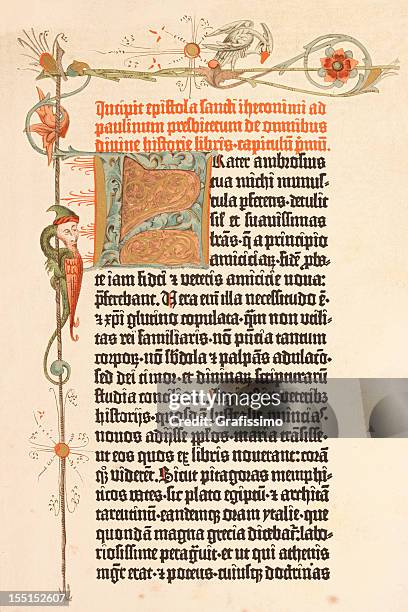 Incipit epistola sancti iheronimi ad
paulinum presbiterum de omnibus
divine historie libris. capitulū pmū.
Frater ambrosius
tua michi munus-
cula pferens. detulit
sil et suavissimas
lrās. q̄ a principio
amiciciaꝝ. fidē pba-
te iam fidei et veteris amicicie nova
pferebant. Vera enī illa necessitudo ē.
et xpī glutino copulata. qm non utili-
tas rei familiaris. nō pn̄cia tantum
corpoꝝ. nō sbdola et palpans adulacō.
sed dei timor. et divinaꝝ scripturarū
studia conciliant. in veteribꝫ
historijs. quosdā lustrasse ꝓuincias.
novos adisse pplos. maria trāsisse.
ut eos quos ex libris noverant: corā
qꝫ viderēt. Sicut pitagoras memphi-
ticos vates. sic plato egiptū. et architā
tarentinū. eandemqꝫ oram ytalie. que
quondā magna grecia dicebat. labo-
riosissime peragrūit. et ut qui athenis
mgr erat. et potens. cuiusqꝫ doctrinas
gettyimages
Credit: Grafissimo
155152607